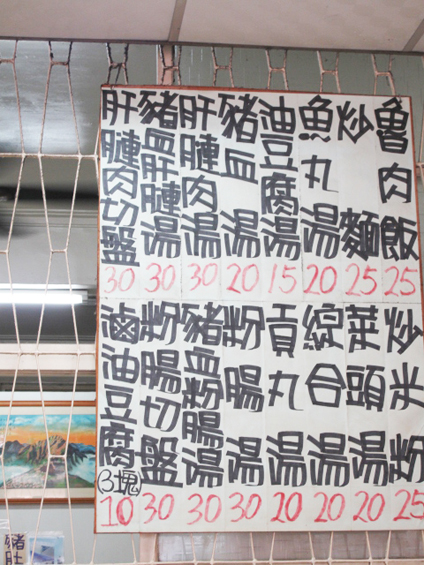 魯肉飯 25
炒麵 25
魚丸湯 20
油豆腐湯 15
豬血湯 20
肝膁肉湯 30
豬血肝膁湯 30
肝膁肉切盤 30
炒米粉 25
菜頭湯 20
綜合湯 20
貢丸湯 20
粉腸湯 30
豬血粉腸湯 30
粉腸切盤 30
滷油豆腐(3塊) 10
豬肚